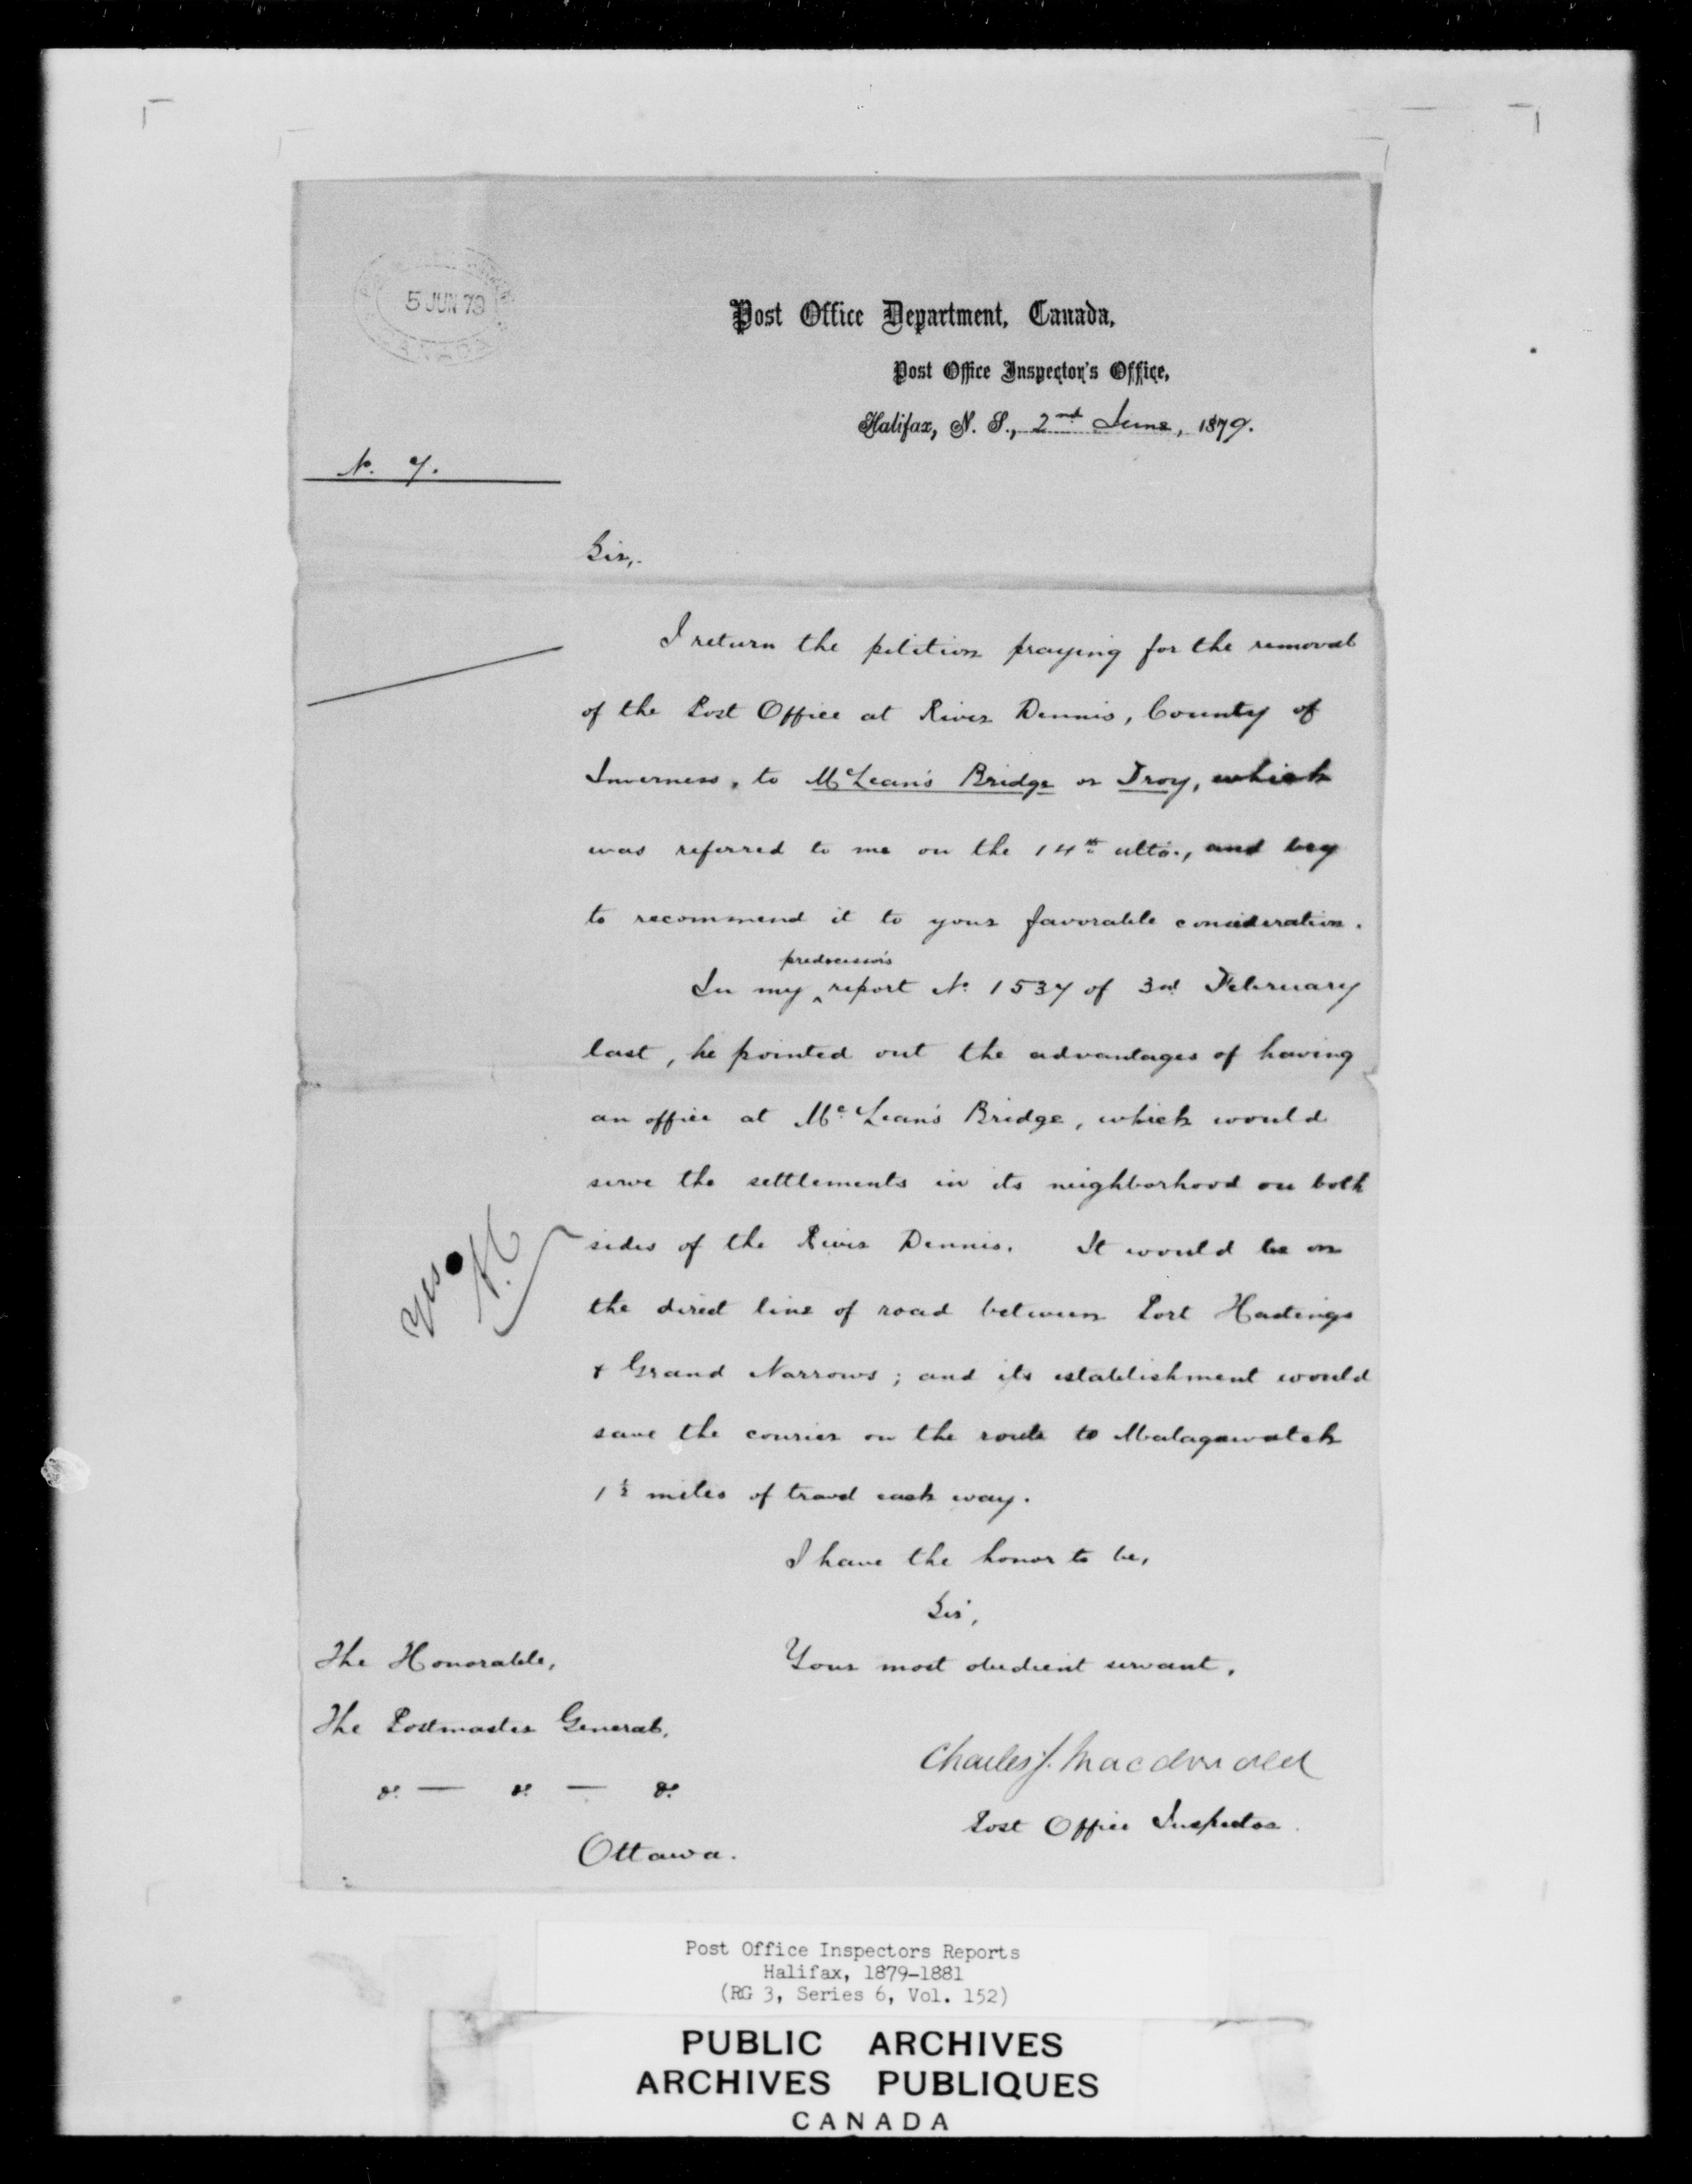 5 JUN 79
CANADA
Post Office Department, Canada,
Post Office Inspector's Office,
Halifax, N. S., 2nd June, 1879.
No. 7.
Sir,
I return the petition praying for the removal
of the Post Office at River Dennis, County of
Inverness, to McLean's Bridge or Troy, which
was referred to me on the 14th ulto., and beg
to recommend it to your favorable consideration.
predecessor's
In my ‸ report No 1537 of 3rd February
last, he pointed out the advantages of having
an office at McLean's Bridge, which would
serve the settlements in its neighborhood on both
sides of the River Dennis. It would be on
the direct line of road between Port Hastings
& Grand Narrows; and its establishment would
save the courier on the route to Malagawatch
1½ miles of travel each way.
yes
I have the honor to be,
Sir,
Your most obedient servant,
Charles J. Macdonald
Post Office Inspector.
The Honorable,
The Postmaster General,
&c — &c — &c
Ottawa.
Post Office Inspectors Reports
Halifax, 1879-1881
(RG 3, Series 6, Vol. 152)
PUBLIC ARCHIVES
ARCHIVES PUBLIQUES
CANADA